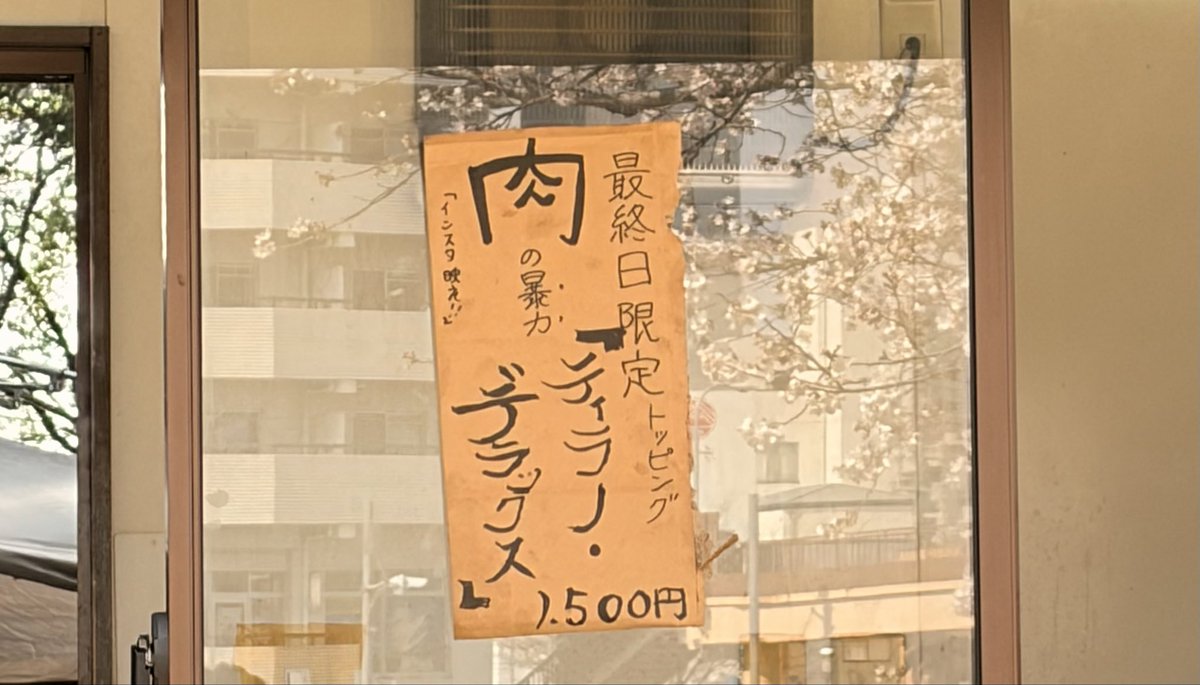 最終日限定トッピング
肉の暴力
『ティラノ・
デラックス』
「インスタ映え!!」
1.500円